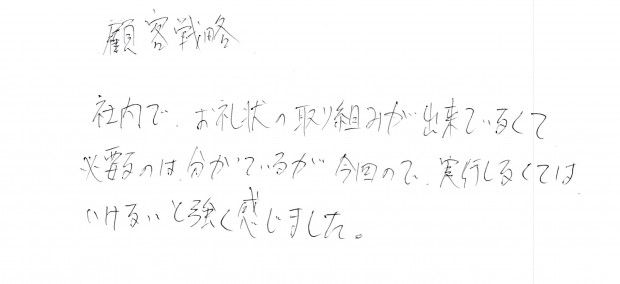 顧客戦略
社内で、お礼状の取り組みが出来ていなくて
必要なのは分かっているが今回ので、実行しなくては
いけないと強く感じました。